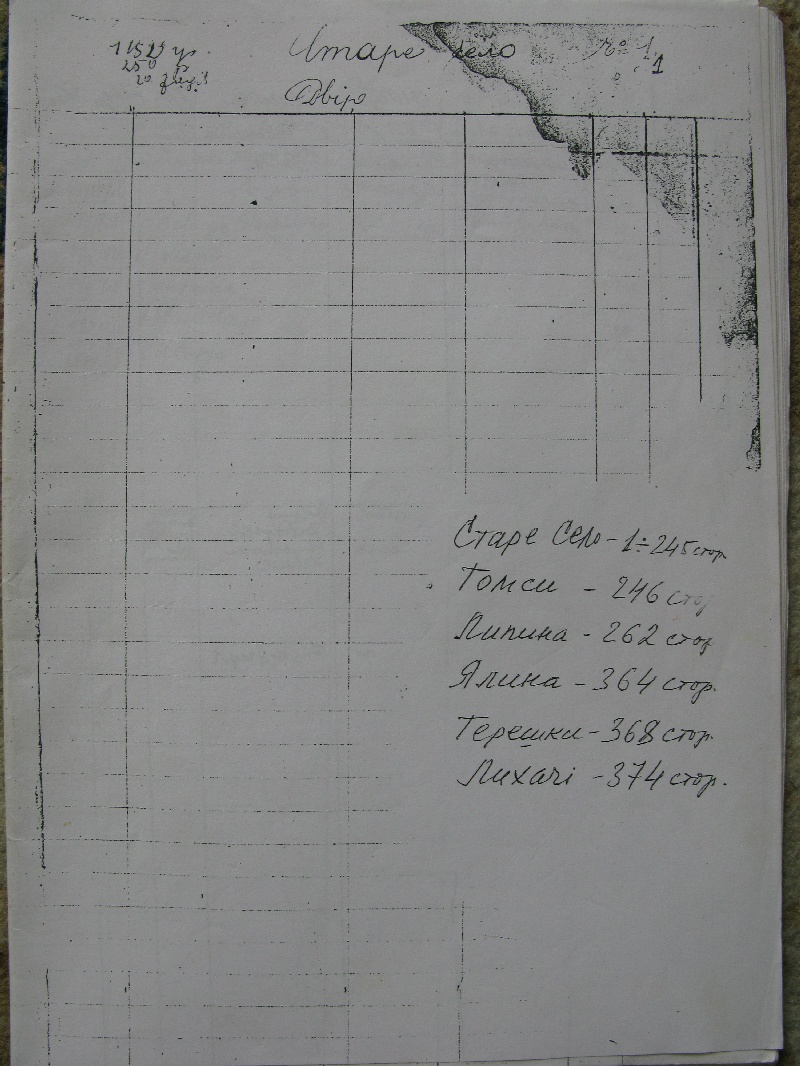 Старе село № 1.
1
Двір
Старе Село - 1÷245 стор.
Томси - 246 стор
Липина - 262 стор
Ялина - 364 стор.
Терешки - 368 стор.
Лихачі - 374 стор.